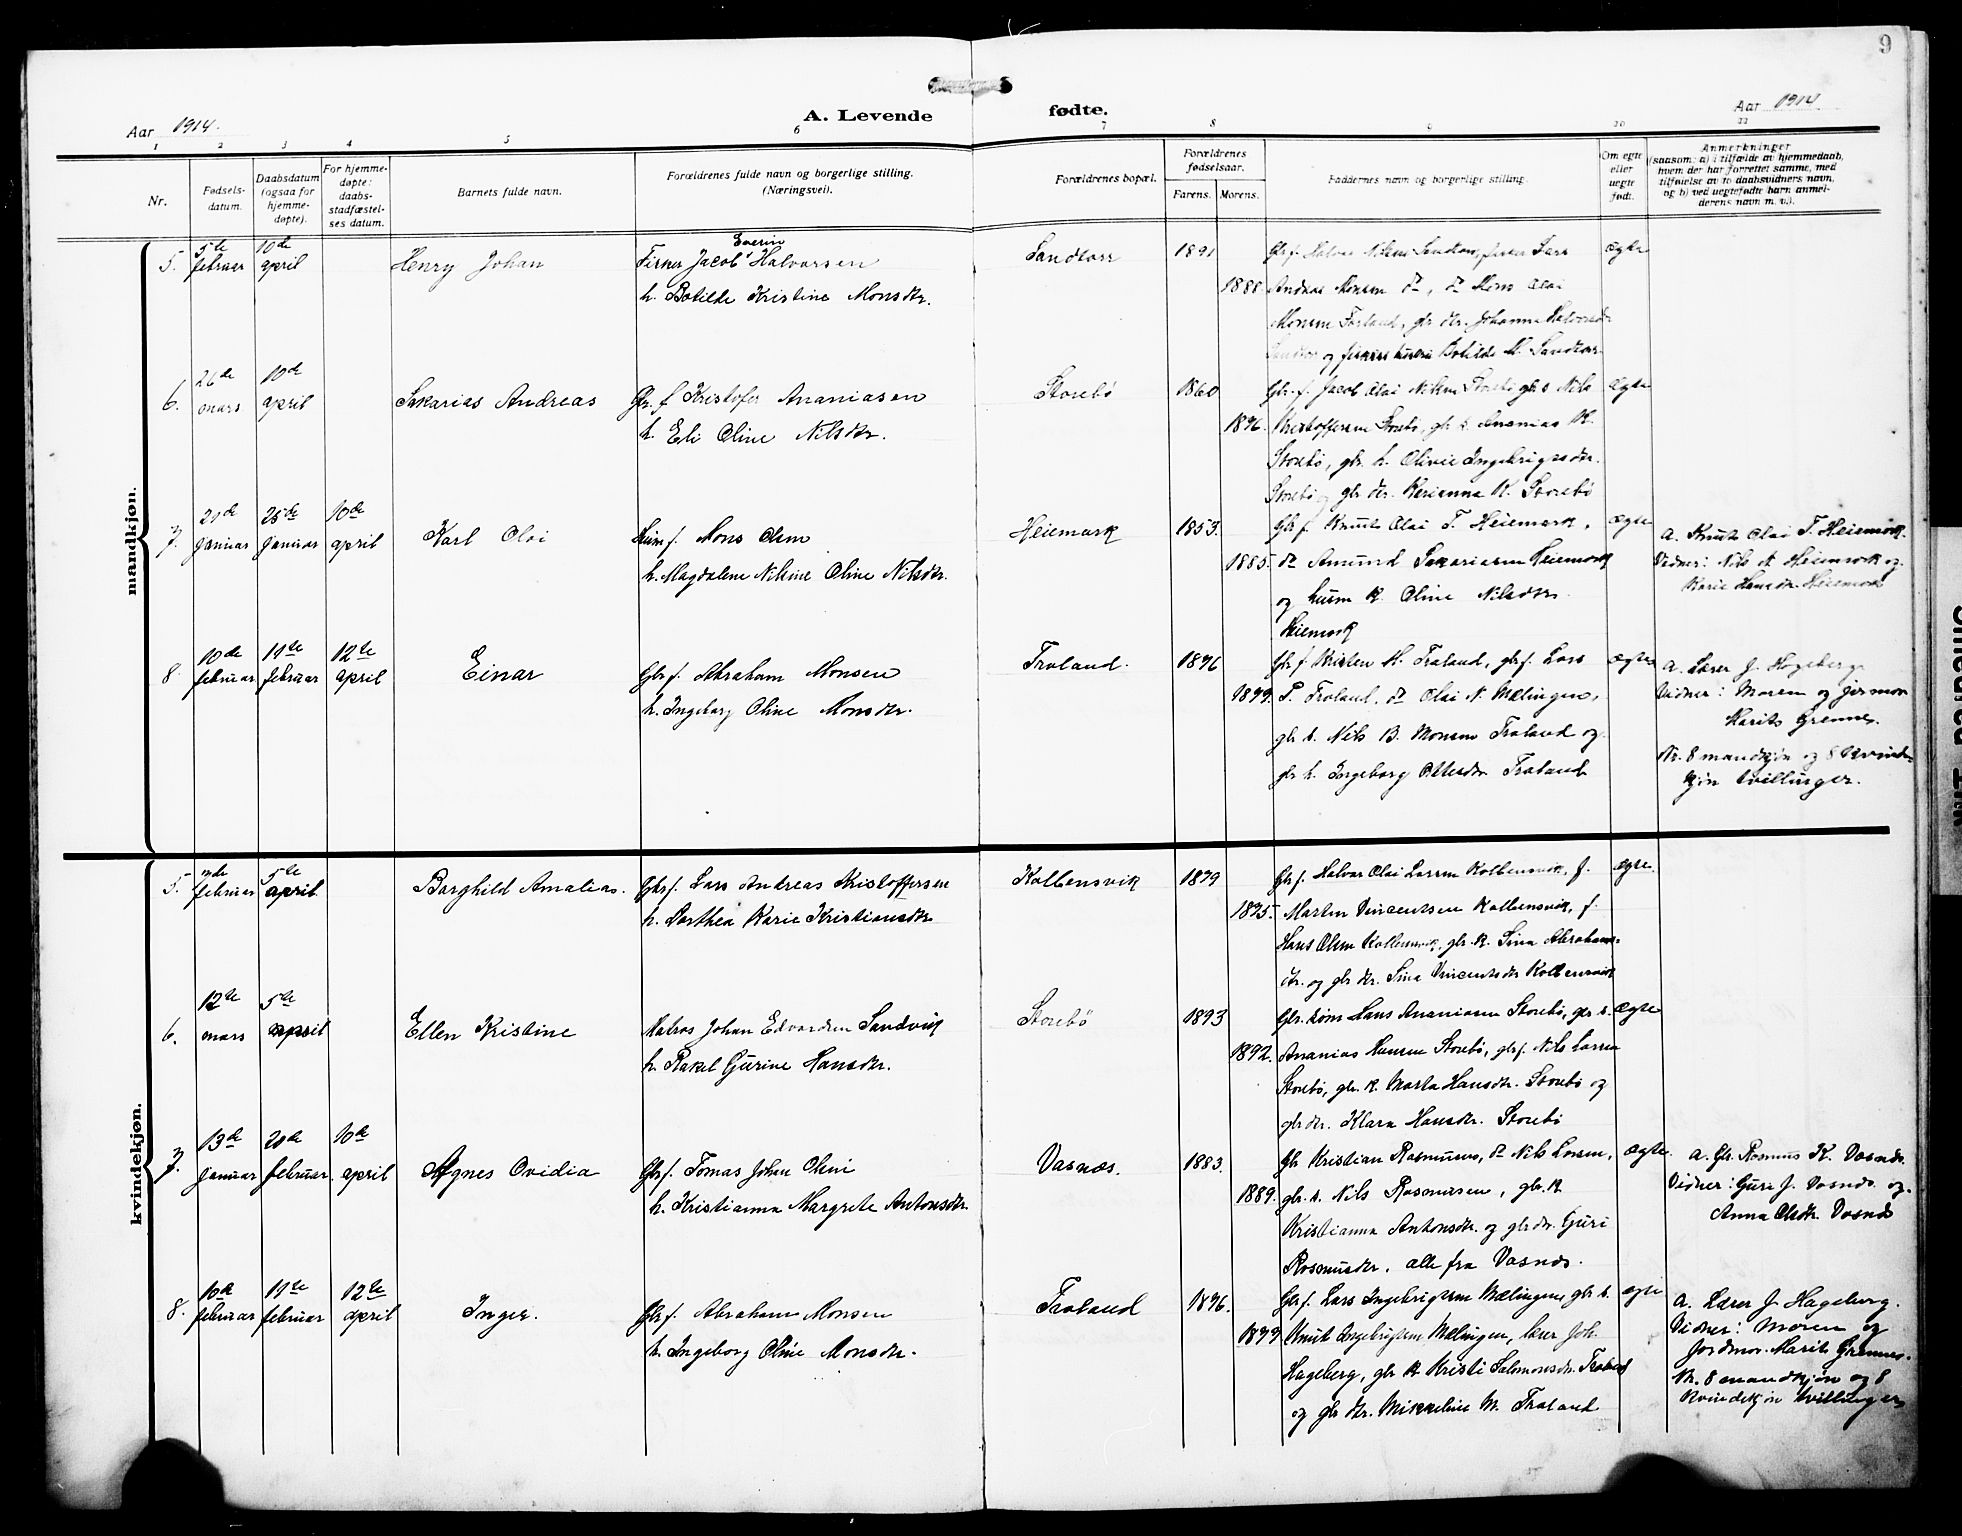 9
Aar 1914.
A. Levende fødte.
Aar 1914
1 2 3 4 5 6 7 8 9 10 11
Nr.
Fødsels-
datum.
Daabsdatum
(ogsaa for
hjemme-
døpte).
For hjemme-
døpte:
daabs-
stadfæstel-
ses datum.
Barnets fulde navn.
Forældrenes fulde navn og borgerlige stilling.
(Næringsvei).
Forældrenes bopæl.
Forældrenes
fødselsaar.
Farens. Morens.
Faddernes navn og borgerlige stilling.
Om egte
eller
uegte
født.
Anmerkninger
(saasom: a) i tilfælde av hjemmedaab,
hvem der har forrettet samme, med
tilføielse av to daabsvidners navn,
og b) ved uegtefødte barn anmel-
derens navn m. v.).
mandkjøn.
5.
5te
februar
10de
april
Henry Johan
Severin
Fisker Jacob Halvorsen
h. Botilde Kristine Monsdtr.
Sandtorr
1891
1888.
Gbr f. Halvor Nilsen Sandtorr, fisker Lars
Andreas Monsen do, do Mons Olai
Monsen Forland, gbr dtr. Johanna Halvorsdr
Sandtorr og fiskers hustru Botilde M. Sandtorr.
ægte
6.
26de
mars
10de
april
Sakarias Andreas
Gbr. f Kristofer Ananiasen
h. Eli Oline Nilsdtr.
Storebø
1860
1876.
Gbr. f. Jacob Olai Nilsen Storebø gbr s Nils
Kristoffersen Storebø, gbr s. Ananias K.
Storebø, gbr. h. Olivie Ingebrigtsdtr.
Storebø og gbr dtr. Karianna K. Storebø
ægte
7.
20de
januar
25de
januar
10de
april
Karl Olai
Husm f. Mons Olsen
h. Magdalene Nilsine Oline Nilsdtr.
Heiemark
1853.
1885.
Gbr f. Knut Olai T. Heiemark,
do Amund Sakariasen Heiemark
og husm k. Oline Nilsdtr
Heiemark
ægte
a. Knut Olai T. Heiemark.
Vidner: Nils A Heiemark og
Karie Hansdtr Heiemark
8
10de
februar
11te
februar
12te
april
Einar
Gbr f. Abraham Monsen
h. Ingeborg Oline Monsdtr.
Troland.
1876
1879.
Gbr f Kristen M. Troland, gbr f. Lars
P. Troland, do Olai N. Mælingen,
gbr s. Nils B. Monsen Troland og
gbr h. Ingeborg Olsdtr Troland
ægte
a. Lærer J. Hageberg.
Vidner: Moren og jormor
Marits Grenne.
Nr. 8 mandkjøn og 8 kvinde-
kjøn tvillinger.
kvindekjøn.
5.
februar
5te
april
Borghild Amalias.
Gbr f. Lars Andreas Kristoffersen
h. Dorthea Karie Kristiansdtr
Kolbensvik
1879
1875.
Gbr f. Halvor Olai Larsen Kolbensvik, f.
Martin Vincentsen Kolbensvik, f.
Hans Olsen Kolbensvik, gbr. k. Sina Abrahams-
dtr. og gbr dtr. Sina Vincentsdtr Kolbensvik
ægte.
6.
12te
mars
5te
april
Ellen Kristine
Matros Johan Edvardsen Sandvik
h. Rakel Gurine Hansdtr.
Storebø
1893
1892.
Gbr. Hans Ananiasen Storebø, gbr s.
Ananias Hansen Storebø, gbr f. Nils Larsen
Storebø, gbr. k. Marta Hansdtr. Storebø og
gbr dtr. Klara Hansdtr. Storebø
ægte
7.
13de
januar
20de
februar
10de
april
Agnes Ovidia
Gbr f. Tomas Johan Olsen
h. Kristianna Margrete Antonsdtr.
Vasnæs.
1883.
1889.
Gbr Kristian Rasmussen, do Nils Larsen,
gbr. s. Nils Rasmussen, gbr. k
Kristianna Antonsdtr. og gbr dtr. Guri
Rasmusdtr. alle fra Vasnæs.
ægte.
a. Gbr. Rasmus K. Vasnæs.
Vidner: Guri J. Vasnæs og
Anna Olsdtr. Vasnæs
8.
10de
februar
11te
februar
12te
april
Inger.
Gbr f. Abraham Monsen
h. Ingeborg Oline Monsdtr.
Troland
1876.
1879
Gbr f. Lars Ingebrigtsen Mælingen, gbr s.
Knut Ingebrigtsen Mælingen, lærer Joh.
Hageberg, gbr k Kristi Salomonsdtr. Troland
og gbr dtr. Mikkeline M. Troland
egte
a. Lærer J. Hageberg.
Vidner: Moren og
Jordmor Marits Grenne.
Nr. 8 mandkjøn og 8
kvindekjøn tvillinger